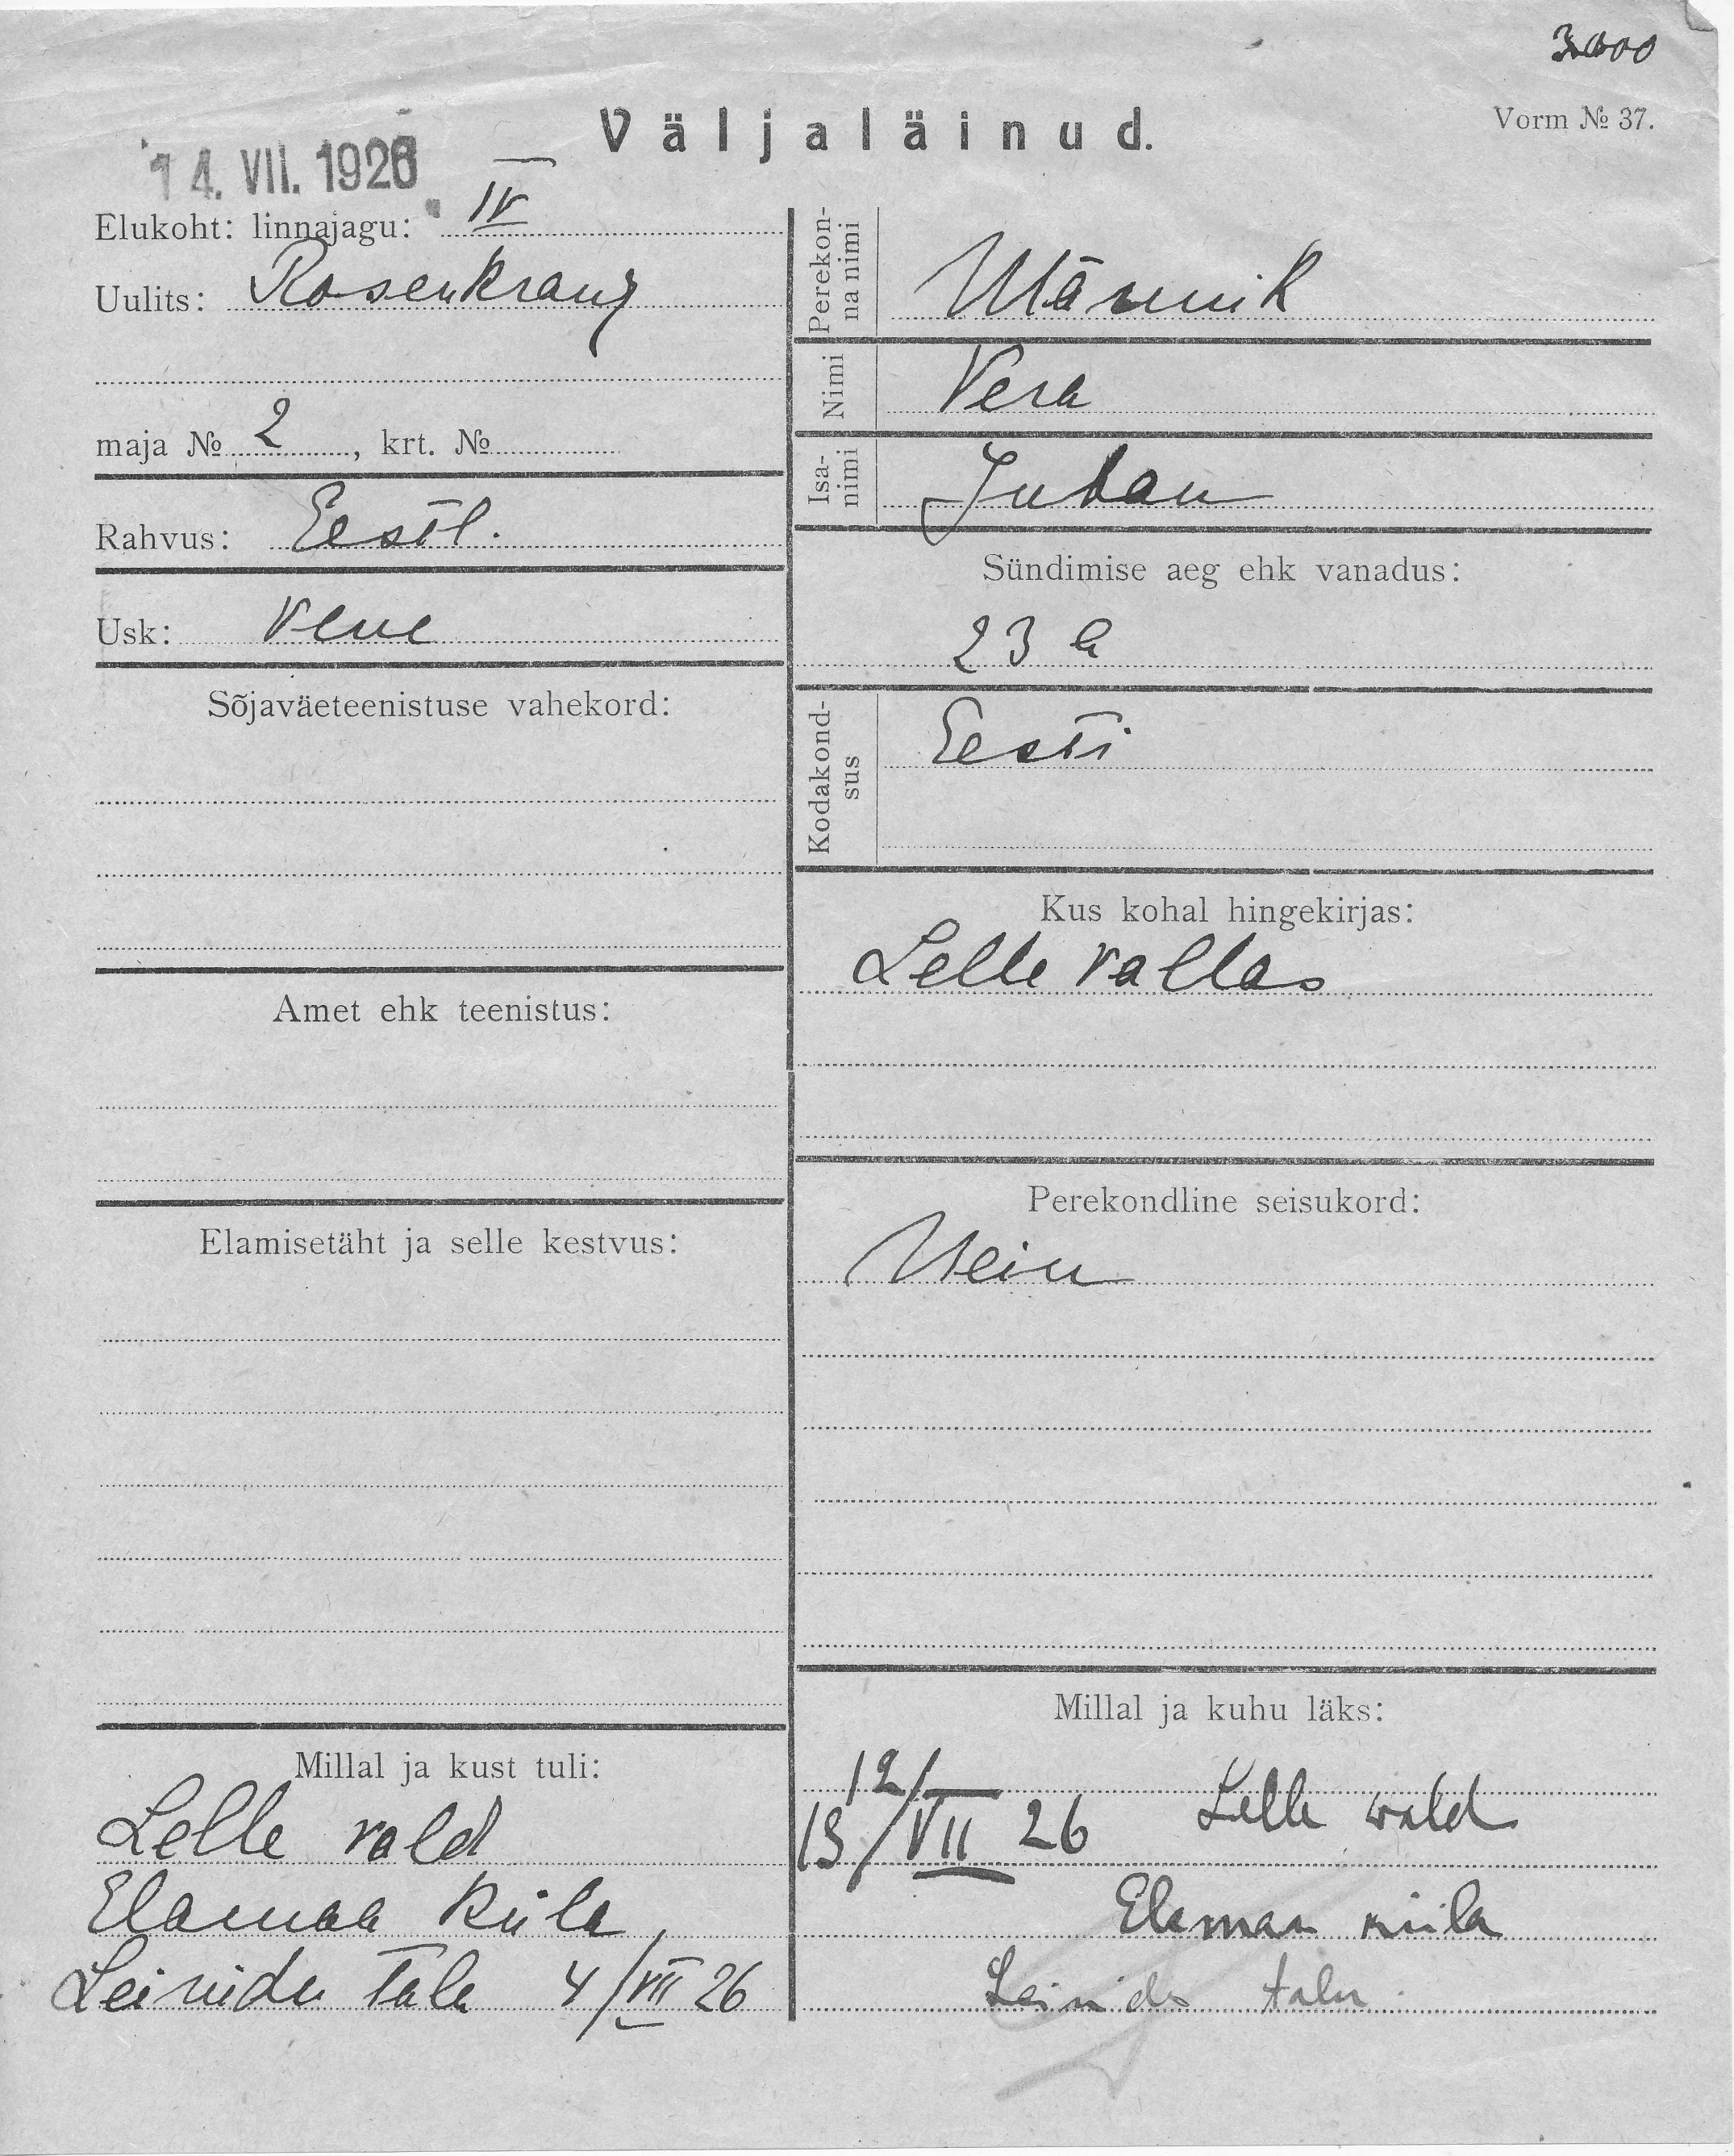 Väljaläinud.
Vorm № 37.
14. VII. 1926
Elukoht: linnajagu: IV
Uulits: Rosenkranz
maja № 2, krt. №
Rahvus: Eestl.
Usk: Vene
Sõjaväeteenistuse vahekord:
Amet ehk teenistus:
Elamisetäht ja selle kestvus:
Millal ja kust tuli:
Lelle vald
Elamaa küla
talu 4/VII 26
Perekon-
na nimi
Männik
Nimi Vera
Isa-
nimi
Juhan
Sündimise aeg ehk vanadus:
23 a
Kodakond-
sus
Eesti
Kus kohal hingekirjas:
Lelle vallas
Perekondline seisukord:
Neiu
Millal ja kuhu läks:
12/
13/VII 26 Lelle wald
Elamaa küla
talu